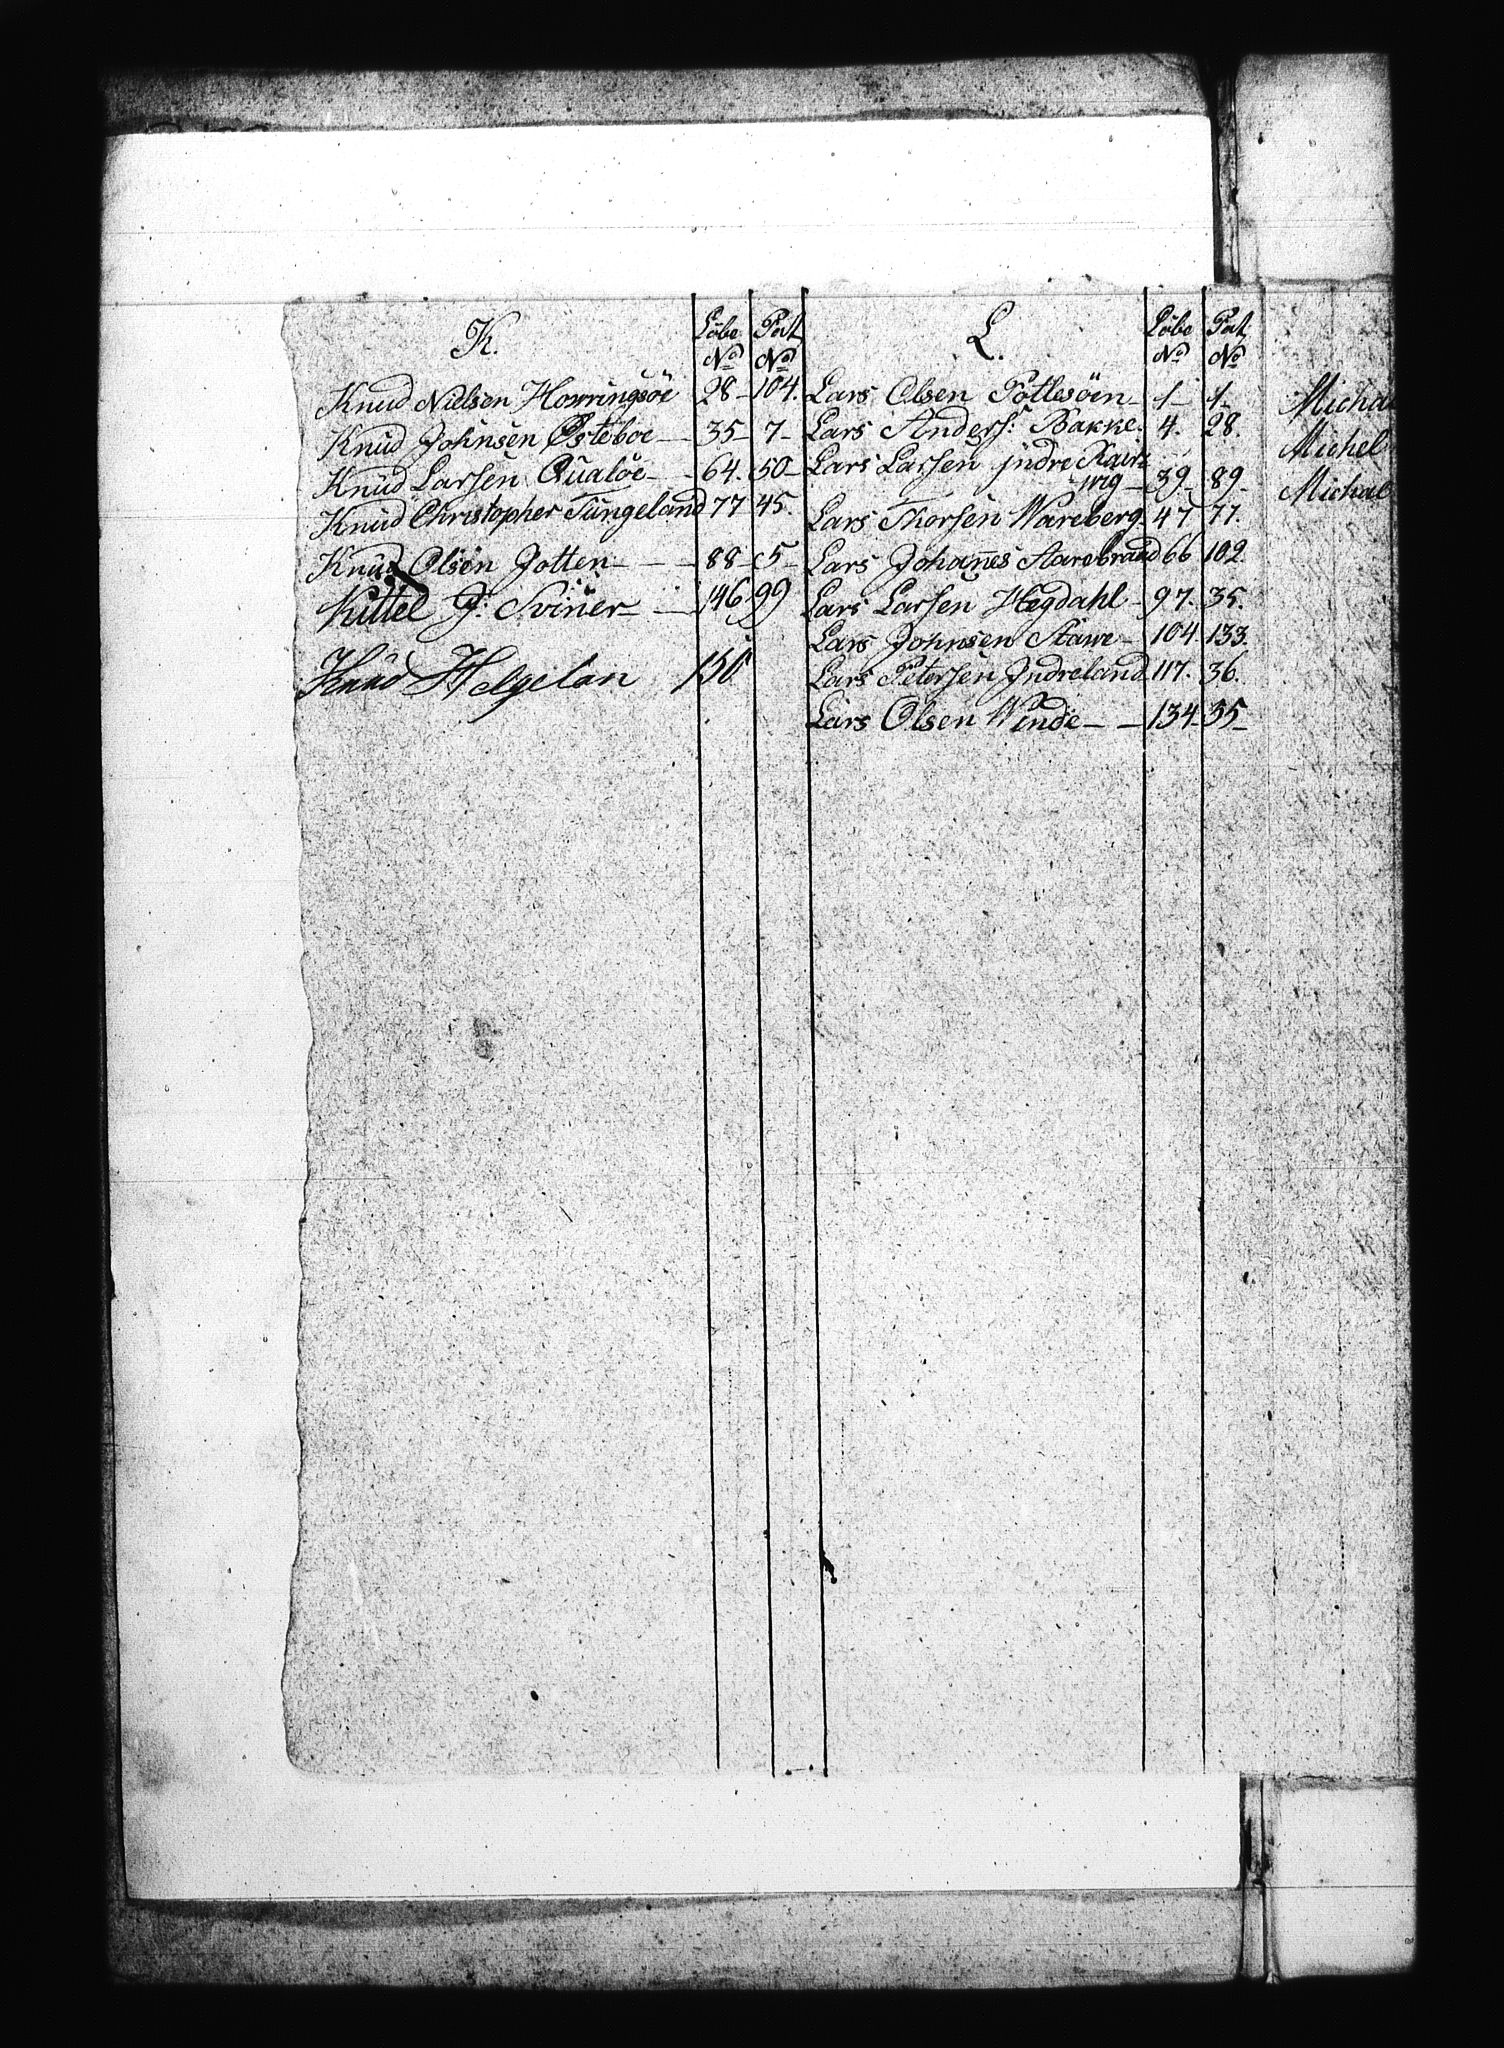 K.
Löbe Pat
No No
Knud Nielsen Horringsöe 28 - 104.
Knud Johnsen Østeboe - 35 - 7 -
Knud Larsen Qualöe - 64. 50 -
Knud Christopher Tungeland 77 45.
Knud Olsen Jotten - - 88 - 5 -
Kittel J: Sviner - - 146. 99
Knud Helgelan 150
L.
Löbe Pat
No No
Lars Olsen Pottesöen - 1 - 1 -
Lars Anders: Bakke. 4. 28.
Lars Larsen jndre Kair=
wig - 39 - 89 -
Lars Thorsen Wareberg - 47 77.
Lars Johannes Starebrand 66 102
Lars Larsen Hegdahl - 97. 35.
Lars Johnsen Stawe - 104. 133.
Lars Petersen Jndreland 117. 36.
Lars Olsen Winde - - 134 - 35 -
Micha
Michel
Michael